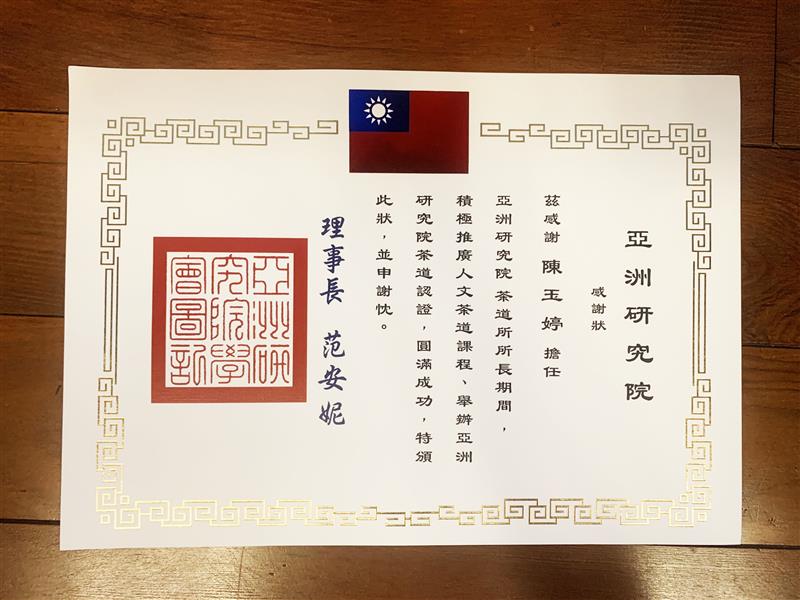 亞洲研究院
感謝狀
茲感謝 陳玉婷 擔任
亞洲研究院 茶道所所長期間，
積極推廣人文茶道課程、舉辦亞洲
研究院茶道認證，圓滿成功，特頒
此狀，並申謝忱。
理事長 范安妮
亞洲研
究院學
會圖記